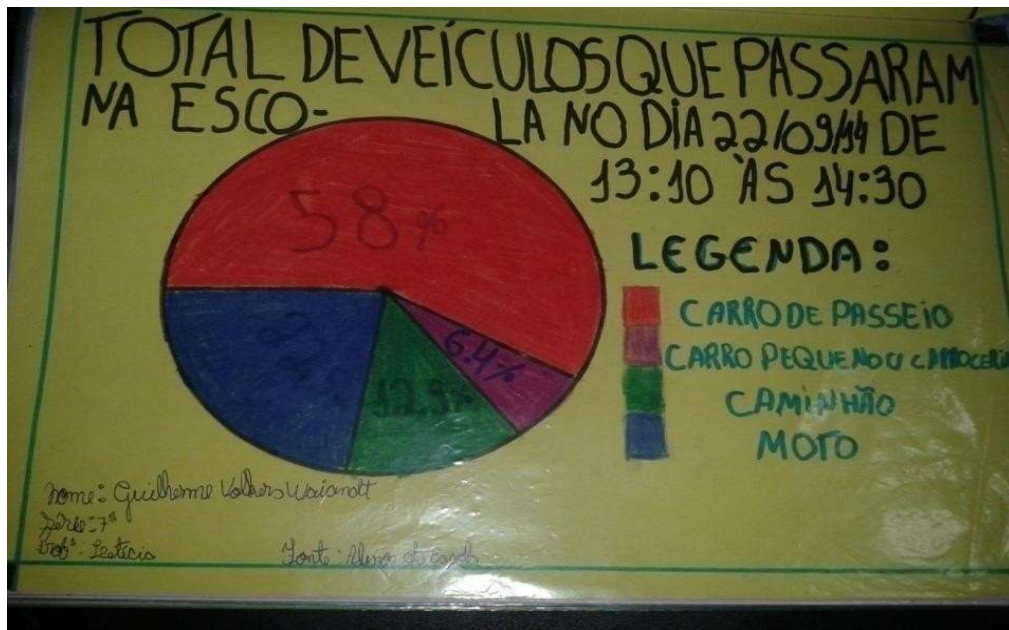 TOTAL DE VEÍCULOS QUE PASSARAM
NA ESCO- LA NO DIA 22/09/14 DE
13:10 ÀS 14:30
58%
LEGENDA:
CARRO DE PASSEIO
6.4%
CARRO PEQUENO C/ CARROCERIA
22
12.9%
CAMINHÃO
MOTO
Nome: Guilherme Volkers Waiandt
Série: 7ª
Profª: Letícia
Fonte: Alunos da Escola